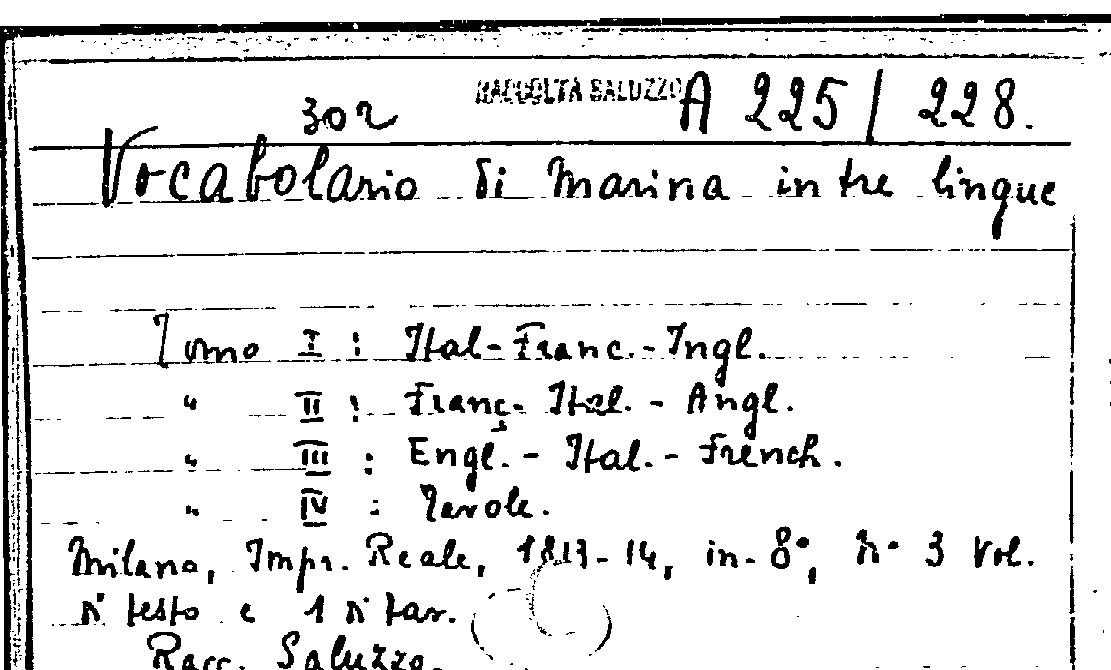 RACCOLTA SALUZZO A 225/228.
302
Vocabolario di Marina in tre lingue
Tomo I : Ital-Franc.-Ingl.
" II : Franç.- Ital. - Angl.
" III : Engl. - Ital. - French.
" IV : Tavole.
Milano, Impr. Reale, 1813-14, in-8°, n° 3 vol.
di testo e 1 di tav.
Racc. Saluzzo.